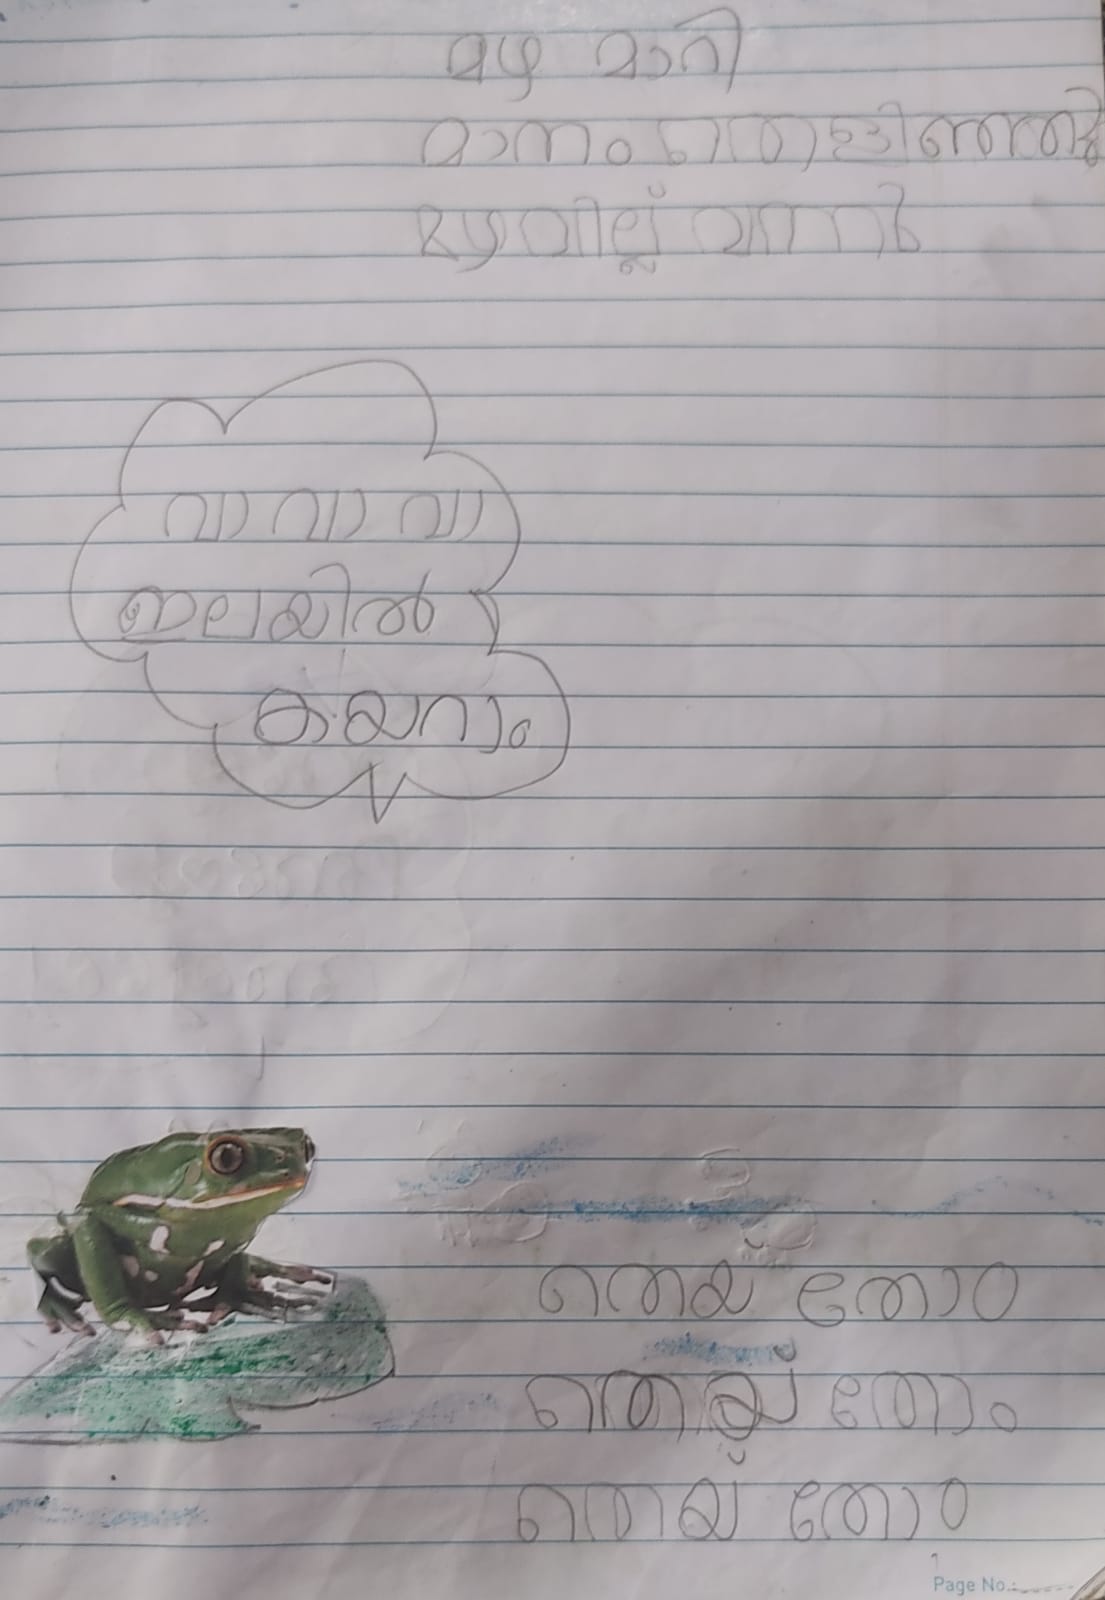 മഴ മാറി
മാനം തെളിഞ്ഞു
മഴവില്ല് വന്നു
വാ വാ വാ
ഇലയിൽ
കയറാം
തെയ് തോം
തെയ് തോം
തെയ് തോം
Page No.: